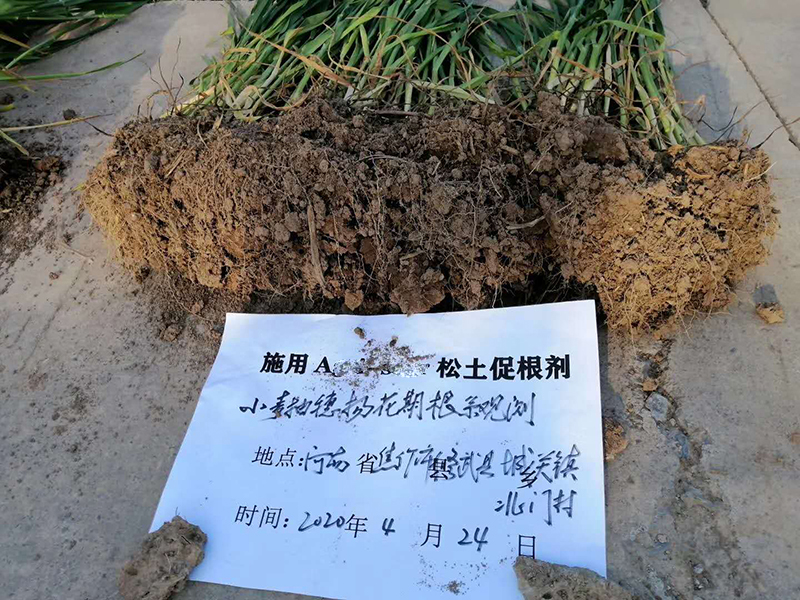 施用 A 松土促根剂
小麦抽穗扬花期根系观测
地点:河南省焦作市修武县城关镇
北门村
时间:2020年4月24日